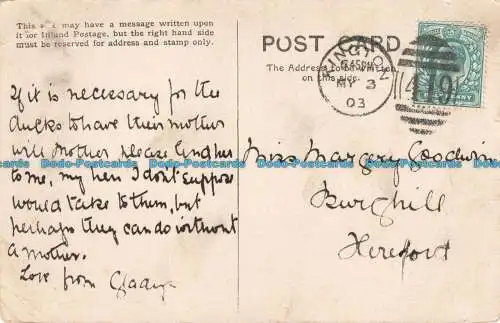 This side may have a message written upon
it for Inland Postage, but the right hand side
must be reserved for address and stamp only.
POST CARD
The Address to be written
on this side.
INGTON
MY 3
03
419
If it is necessary for the
ducks to have their mother
will Mother please lend her
to me, my hen I don't suppose
would take to them, but
perhaps they can do without
a mother.
Love from Gladys
Miss Margery Goodwin
Burghill
Hereford
Dodo-Postcards Dodo-Postcards Dodo-Postcards Dodo-Postcards Dodo-Postcards